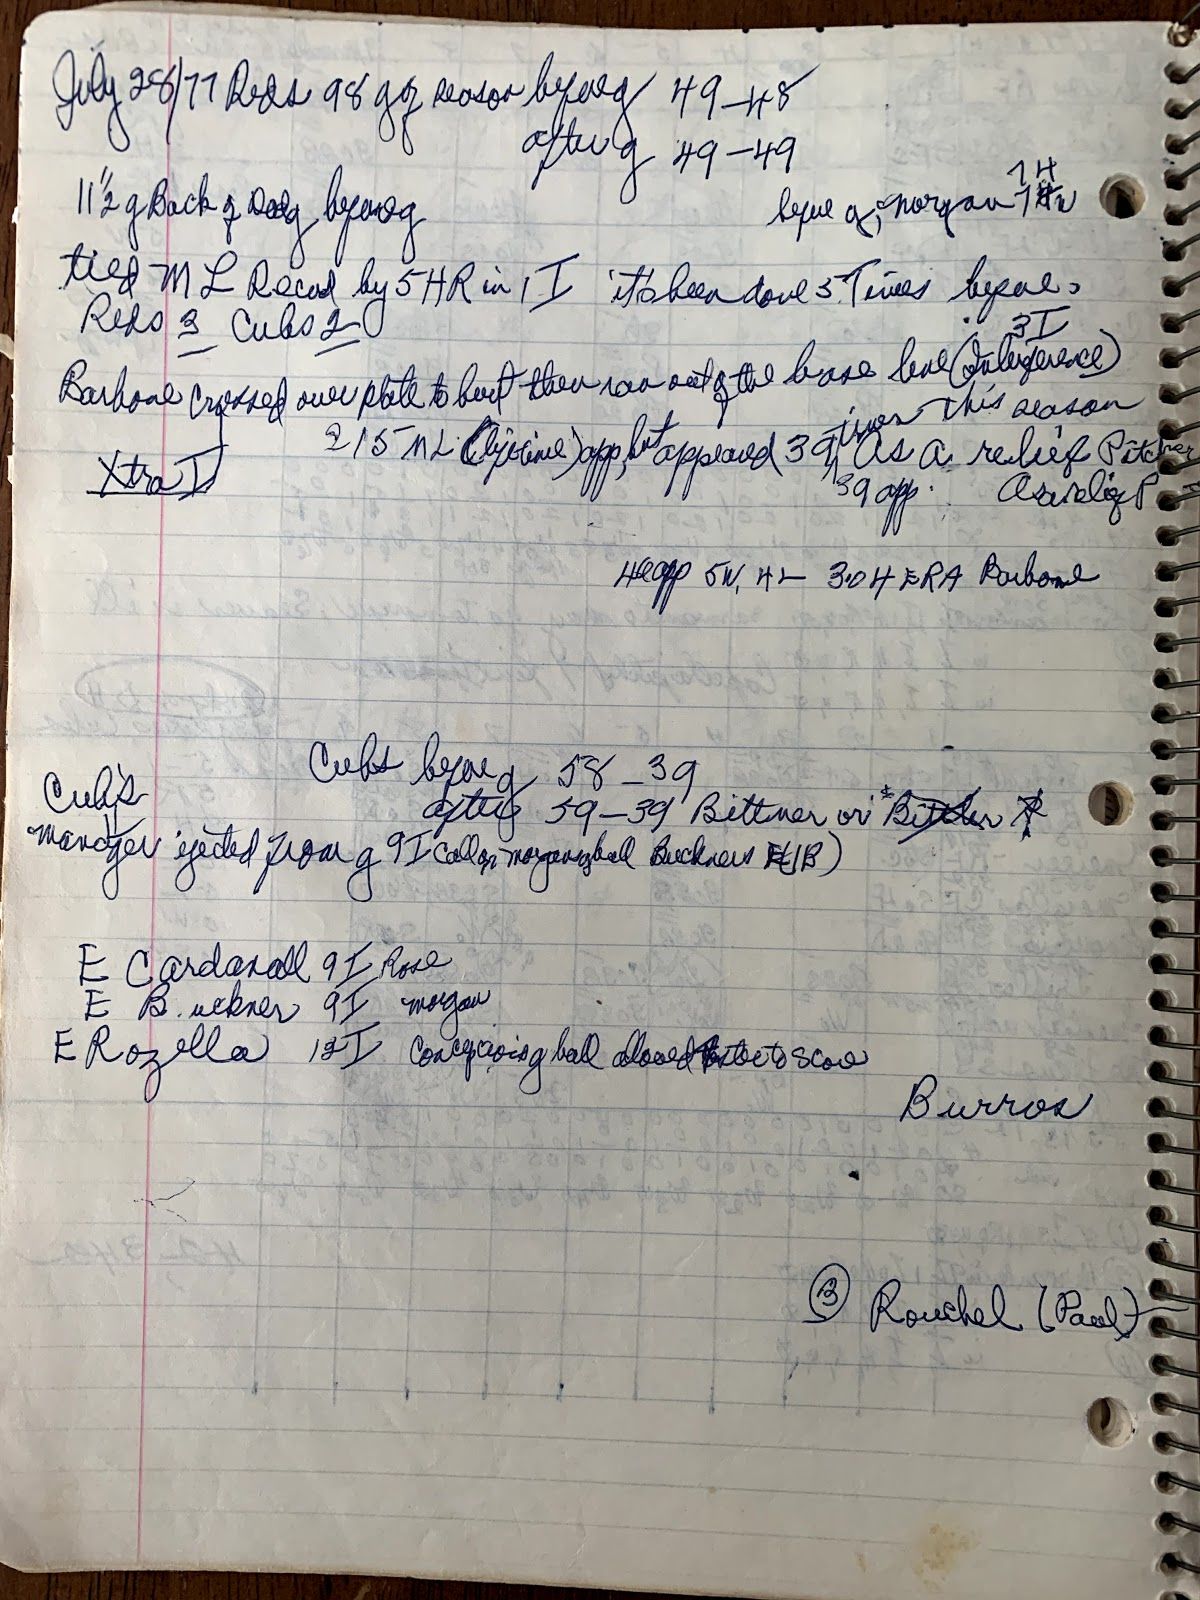 July 28/77 Reds 98 g of season before g 49-48
after g 49-49
11 1/2 g Back of Dodg before g
before g, Morgan 14
tied ML Record by 5 HR in 1 I it's been done 3 Times before
Reds 3 Cubs 2
3 I
Borbone crossed over plate to bunt then ran out of the base line (Interference)
this season
Xtra I
215 ML (lifetime) app, but appeared 39 As a relief Pitcher
39 app. As a relief P
app 5W, 4L 3.04 ERA Borbone
Cubs before g 58-39
Cub's
after g 59-39 Bittner or
manager ejected from g 9I call on Morgan g ball Buckners E/1B)
E Cardanall 9I Rose
E B.uckner 9I Morgan
E Rozella 12I Concepcions g ball allowed to score
Burros
(3) Rouchel (Paul)